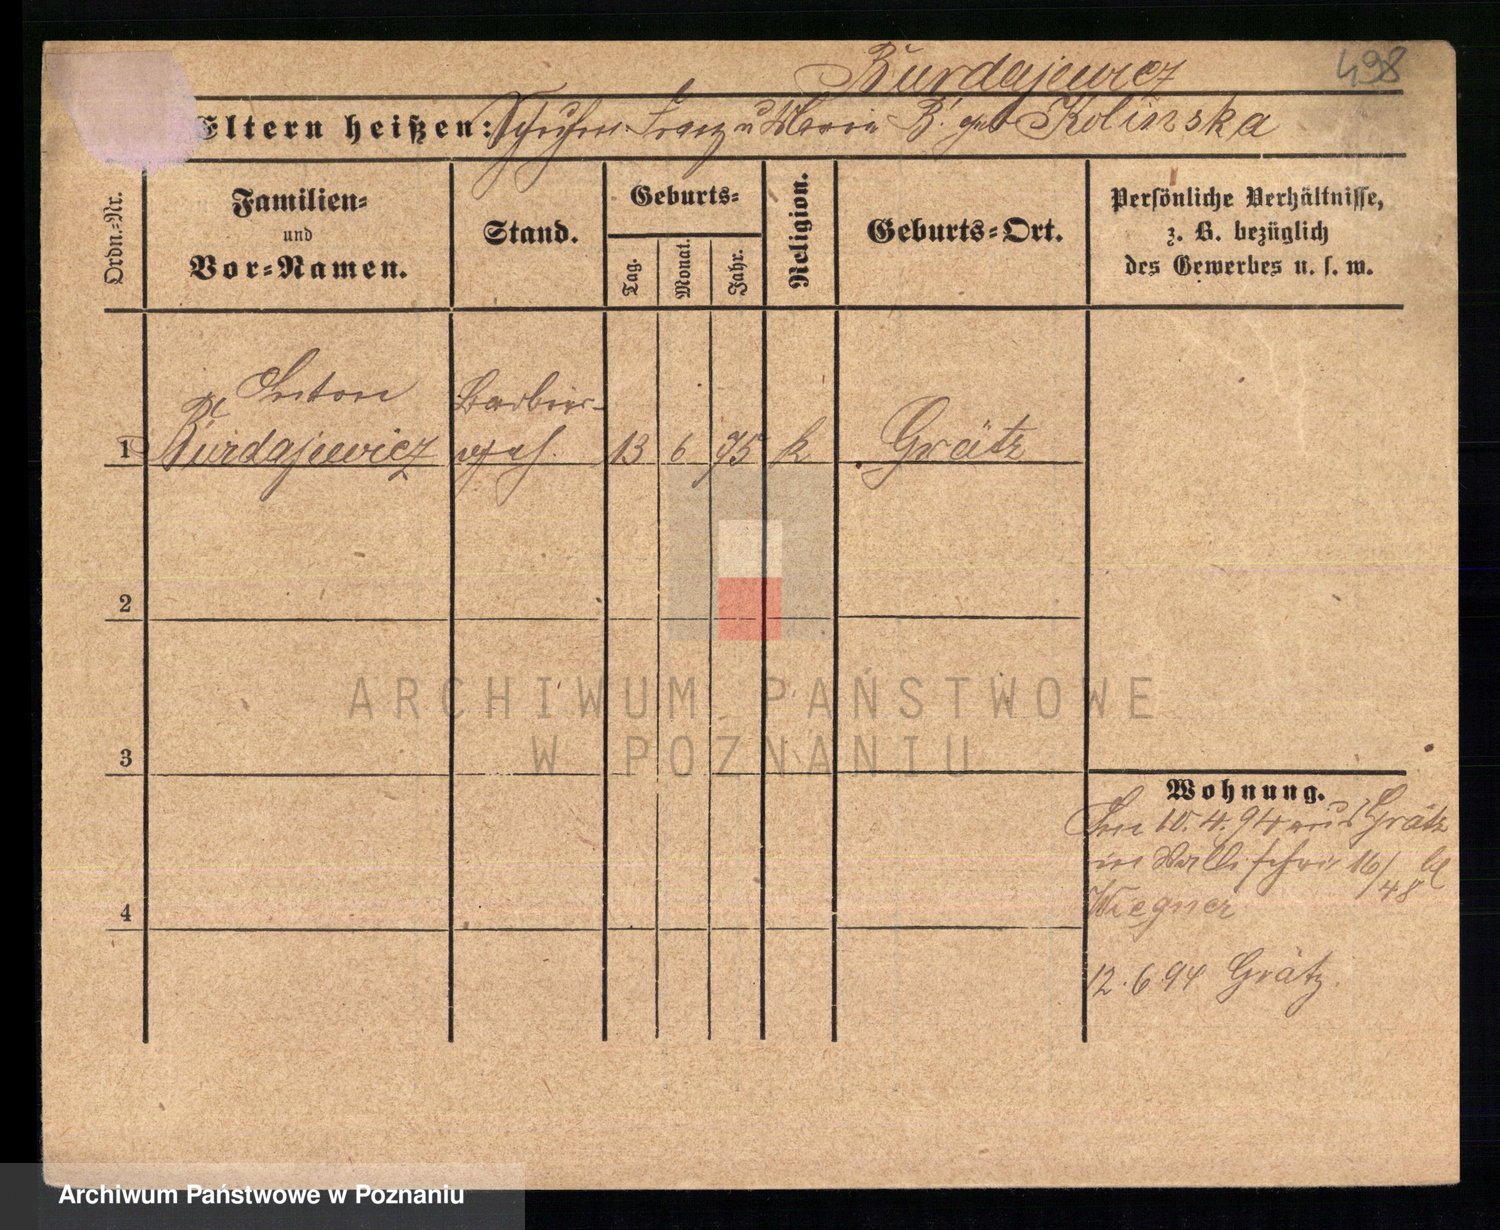 Burdajewicz
498
Eltern heißen: Schuhm. Franz u Maria B. geb Kolinska
Ordn.-Nr.
Familien-
und
Vor-Namen.
Stand.
Geburts-
Tag.
Monat.
Jahr.
Religion.
Geburts-Ort.
Persönliche Verhältnisse,
z. B. bezüglich
des Gewerbes u. s. w.
Anton
Barbier-
1 Burdajewicz geh. 13 6 75 k Grätz
2
ARCHIWUM PAŃSTWOWE
W POZNANIU
3
Wohnung.
10.4.94 aus Grätz
in 16/48 bei
Wegner
4
12.6 94 Grätz.
Archiwum Państwowe w Poznaniu